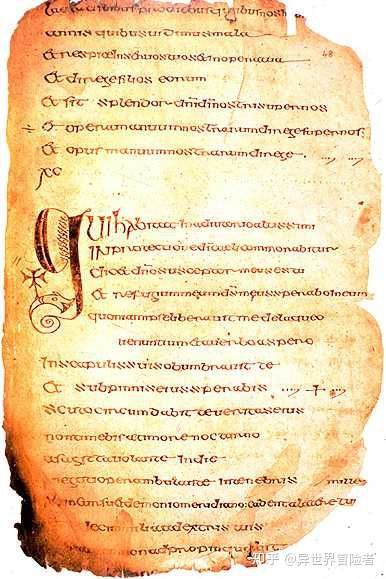 sumus pro diebus quibus nos
annis quibus uidimus mala
Et respice in seruos tuos et in opera tua
Et dirige filios eorum
48
Et sit splendor dni di nostri super nos
Et opera manuum nostrarum dirige super nos;
Et opus manuum nostrarum dirige
XC
Qui habitat in adiutorio altissimi
IN protectione di caeli commorabitur
Dicet dno susceptor meus es tu
Et refugium meum ds meus sperabo in eum
quoniam ipse liberauit me de laqueo
uenantium et a uerbo aspero
In scapulis suis obumbrauit te
Et sub pinnis eius sperabis
scuto circumdabit te ueritas eius
non timebis a timore nocturno
a sagitta uolante in die
negotio perambulante in tenebris mille
ab incursu et demonio meridiano: cadent a latere tuo
decem milia a dextris tuis
non adpropinquabit
知乎 @异世界冒险者